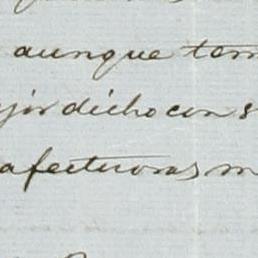 aunque tem
jor dicho con s
afectuosas m